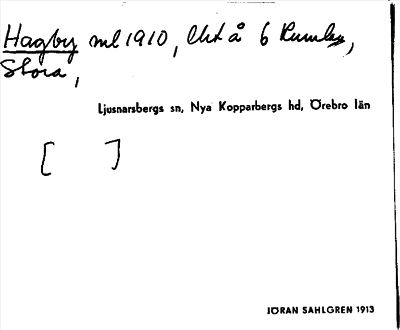 Hagby ml 1910, Urå 6 Rumla,
Stora,
Ljusnarsbergs sn, Nya Kopparbergs hd, Örebro län
[ ]
JÖRAN SAHLGREN 1913